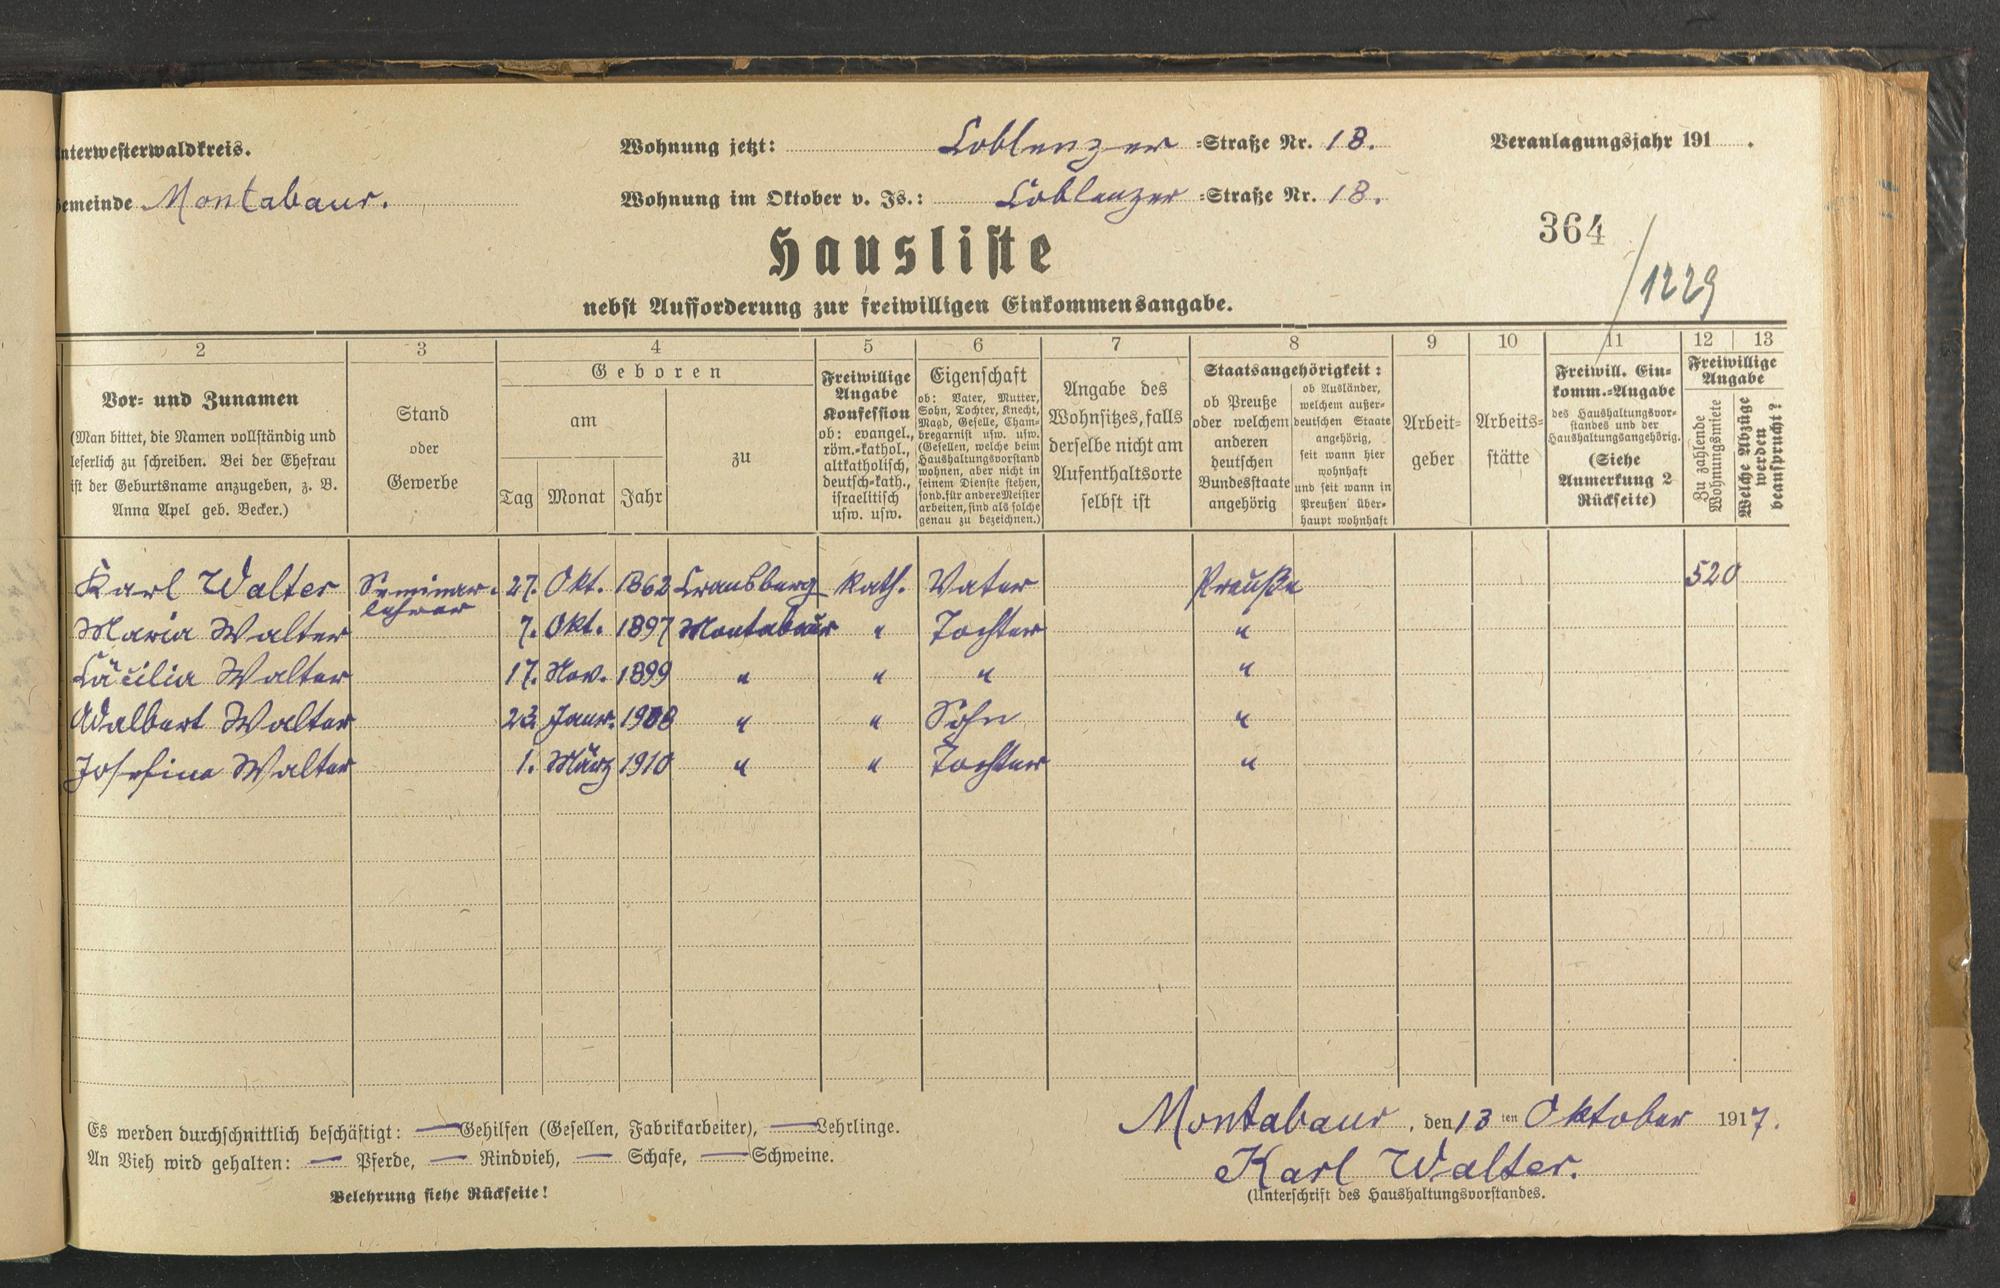 nterwesterwaldkreis.
Wohnung jetzt: Coblenzer =Straße Nr. 18.
Veranlagungsjahr 191 .
emeinde Montabaur.
Wohnung im Oktober v. Js.: Coblenzer =Straße Nr. 18.
364
/1229
Hausliste
nebst Aufforderung zur freiwilligen Einkommensangabe.
2 3 4 5 6 7 8 9 10 11 12 13
Vor- und Zunamen
(Man bittet, die Namen vollständig und
leserlich zu schreiben. Bei der Ehefrau
ist der Geburtsname anzugeben, z. B.
Anna Apel geb. Becker.)
Stand
oder
Gewerbe
Geboren
am
Tag Monat Jahr
zu
Freiwillige
Angabe
Konfession
ob: evangel.,
röm.-kathol.,
altkatholisch,
deutsch-kath.,
israelitisch
usw. usw.
Eigenschaft
ob: Vater, Mutter,
Sohn, Tochter, Knecht,
Magd, Geselle, Cham-
bregarnist usw. usw.
(Gesellen, welche beim
Haushaltungsvorstand
wohnen, aber nicht in
seinem Dienste stehen,
sond. für andere Meister
arbeiten, sind als solche
genau zu bezeichnen.)
Angabe des
Wohnsitzes, falls
derselbe nicht am
Aufenthaltsorte
selbst ist
Staatsangehörigkeit:
ob Preuße
oder welchem
anderen
deutschen
Bundesstaate
angehörig
ob Ausländer,
welchem außer-
deutschen Staate
angehörig,
seit wann hier
wohnhaft
und seit wann in
Preußen über-
haupt wohnhaft
Arbeit-
geber
Arbeits-
stätte
Freiwill. Ein-
komm.-Angabe
des Haushaltungsvor-
standes und der
Haushaltungsangehörig.
(Siehe
Anmerkung 2
Rückseite)
Freiwillige
Angabe
Zu zahlende
Wohnungsmiete
Welche Abzüge
werden
beansprucht?
Karl Walter Seminar- 27. Okt. 1862 Cransberg kath. Vater Preuße 520
lehrer
Maria Walter 7. Okt. 1897 Montabaur " Tochter "
Cäcilia Walter 17. Nov. 1899 " " " "
Adalbert Walter 23. Janr. 1908 " " Sohn "
Josefina Walter 1. März 1910 " " Tochter "
Es werden durchschnittlich beschäftigt: — Gehilfen (Gesellen, Fabrikarbeiter), — Lehrlinge.
An Vieh wird gehalten: — Pferde, — Rindvieh, — Schafe, — Schweine.
Belehrung siehe Rückseite!
Montabaur, den 13 ten Oktober 1917.
Karl Walter.
(Unterschrift des Haushaltungsvorstandes.